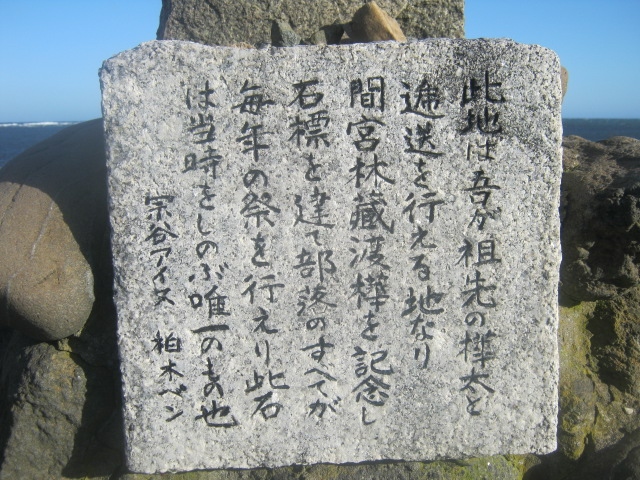 此地は吾が祖先の樺太と
逓送を行える地なり
間宮林蔵渡樺を記念し
石標を建て部落のすべてが
毎年の祭を行えり此石
は当時をしのぶ唯一のもの也
宗谷アイヌ 柏木ベン